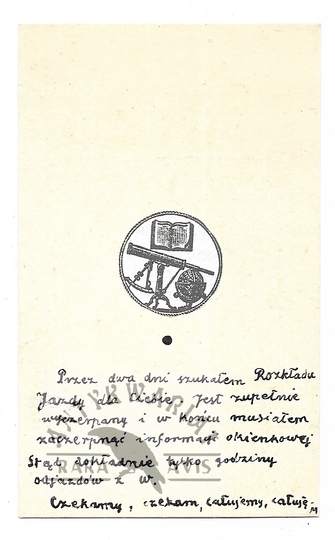 Przez dwa dni szukałem Rozkładu
Jazdy dla Ciebie. Jest zupełnie
wyczerpany i w końcu musiałem
zaczerpnąć informacji okienkowej
Stąd dokładnie tylko godziny
odjazdów z W.
Czekamy, czekam, całujemy, całuję.
M
ANTYKWARIAT
RARA AVIS